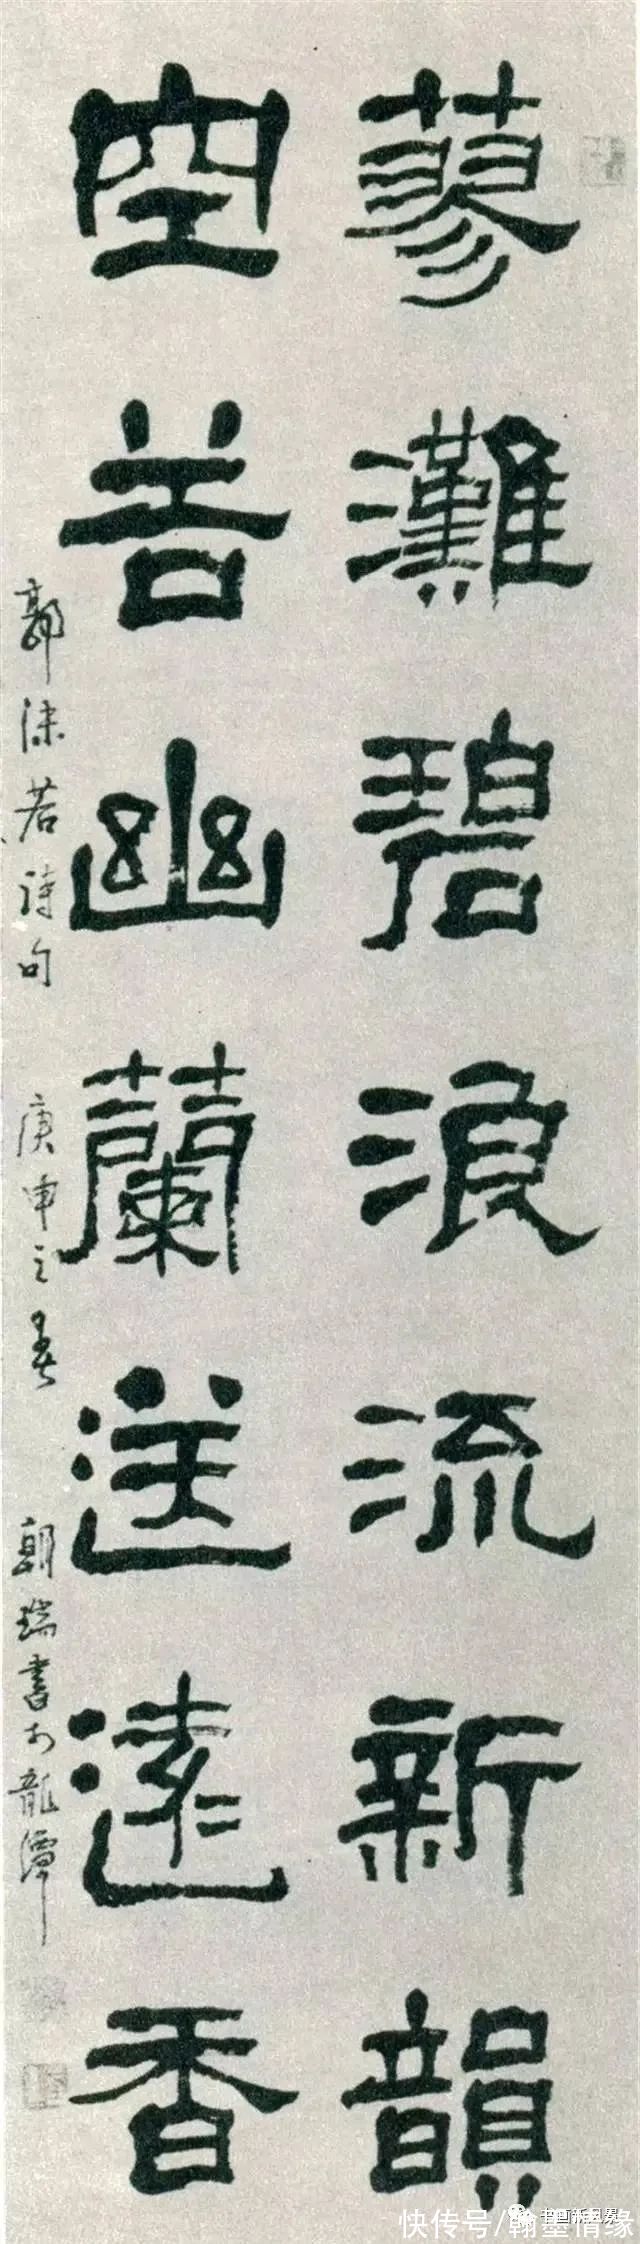 蓼灘碧浪流新韻
空谷幽蘭送遠香
郭沫若詩句 庚申之春 朝瑞書於龍潭
快传号/翰墨情缘